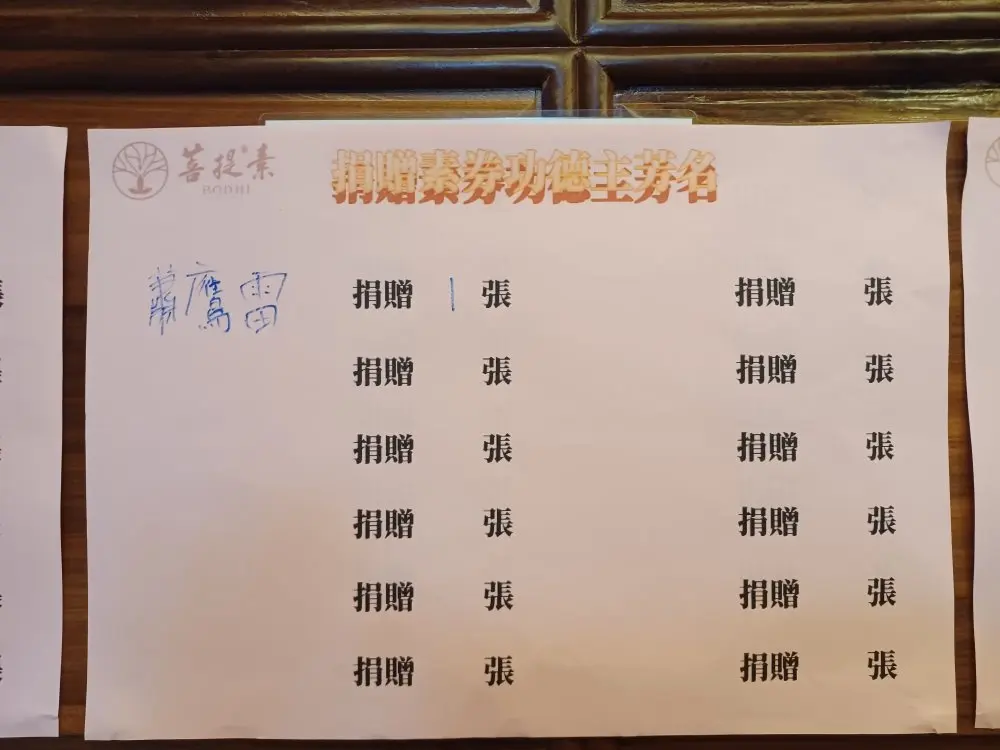 菩提素
BODHI
捐贈素券功德主芳名
蕭鷹雷 捐贈 1 張 捐贈 張
捐贈 張 捐贈 張
捐贈 張 捐贈 張
捐贈 張 捐贈 張
捐贈 張 捐贈 張
捐贈 張 捐贈 張